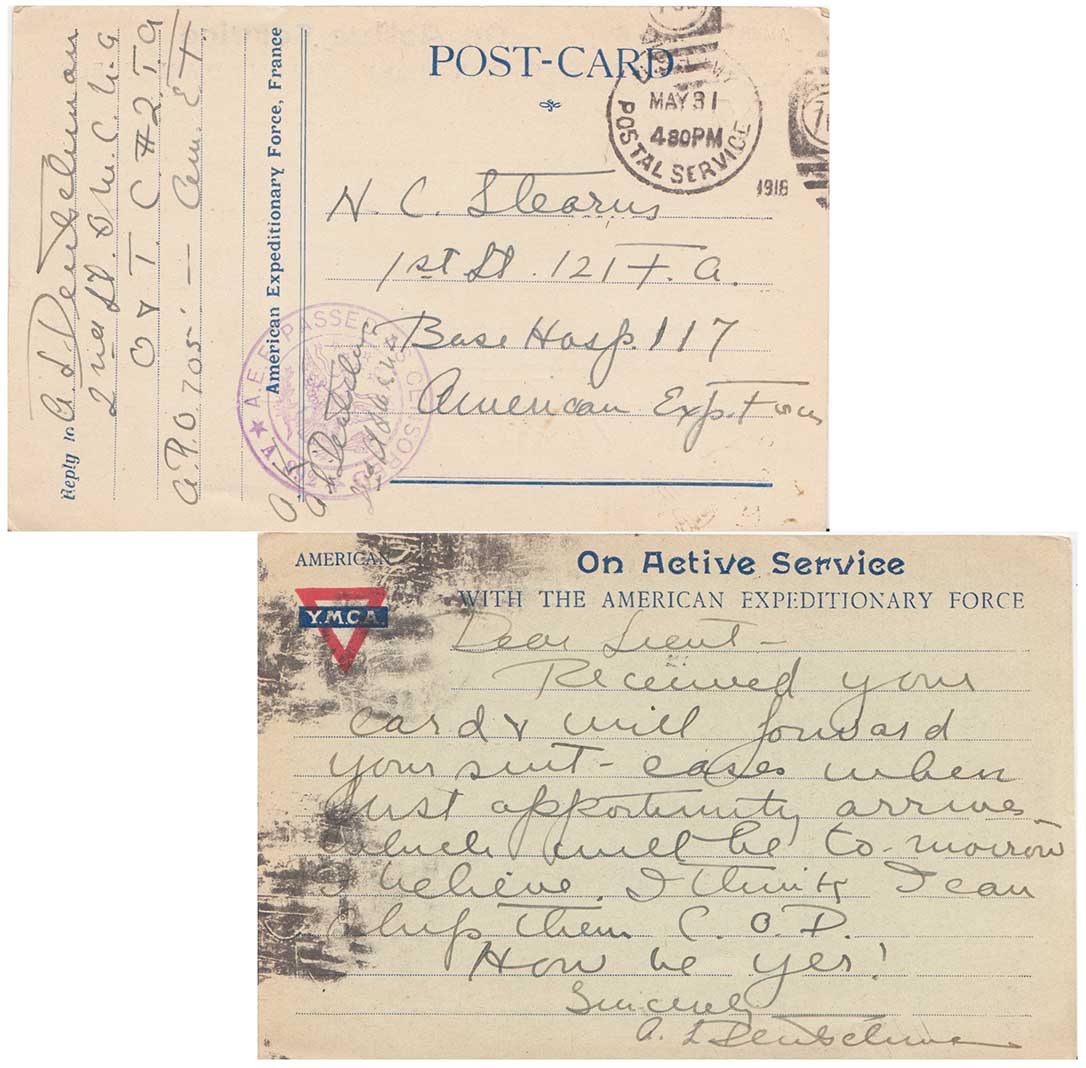 POST-CARD
POSTAL SERVICE
MAY 31
430PM
1918
American Expeditionary Force, France
N. C. Stearns
1st Lt. 121 F. A.
Base Hosp. 117
American Exp. Force
Reply to A. L. Deutschman
2nd Lt. D.M.C. N.G
O & T C #2. T.A
A.P.O. 705 — Am. E. F.
A.E.F. PASSED CENSOR
AMERICAN
Y.M.C.A.
On Active Service
WITH THE AMERICAN EXPEDITIONARY FORCE
Dear Lieut -
Received your
card & will forward
your suit-cases when
first opportunity arrives
which will be to-morrow
I believe. I think I can
ship them C.O.D.
How be yer!
Sincerely
A. L. Deutschman